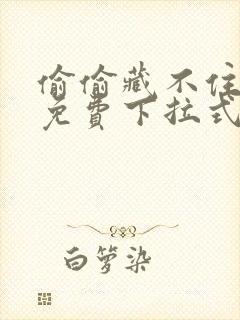 偷偷藏不住
免費下拉式
白箩染